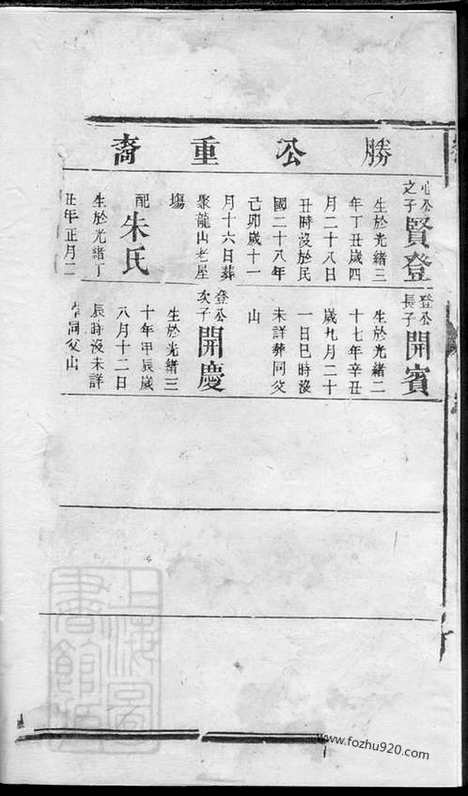 勝公重裔
心公之子
賢登
生於光緒三
年丁丑歲四
月二十八日
丑時沒於民
國二十八年
己卯歲十一
月十六日葬
聚龍山老屋
塲
配
朱氏
生於光緒丁
丑年正月二
登公長子
開賓
生於光緒二
十七年辛丑
歲九月二十
一日巳時沒
未詳葬同父
山
登公次子
開慶
生於光緒三
十年甲辰歲
八月十二日
辰時沒未詳
同父山
上海圖書館藏
www.fozhu920.com